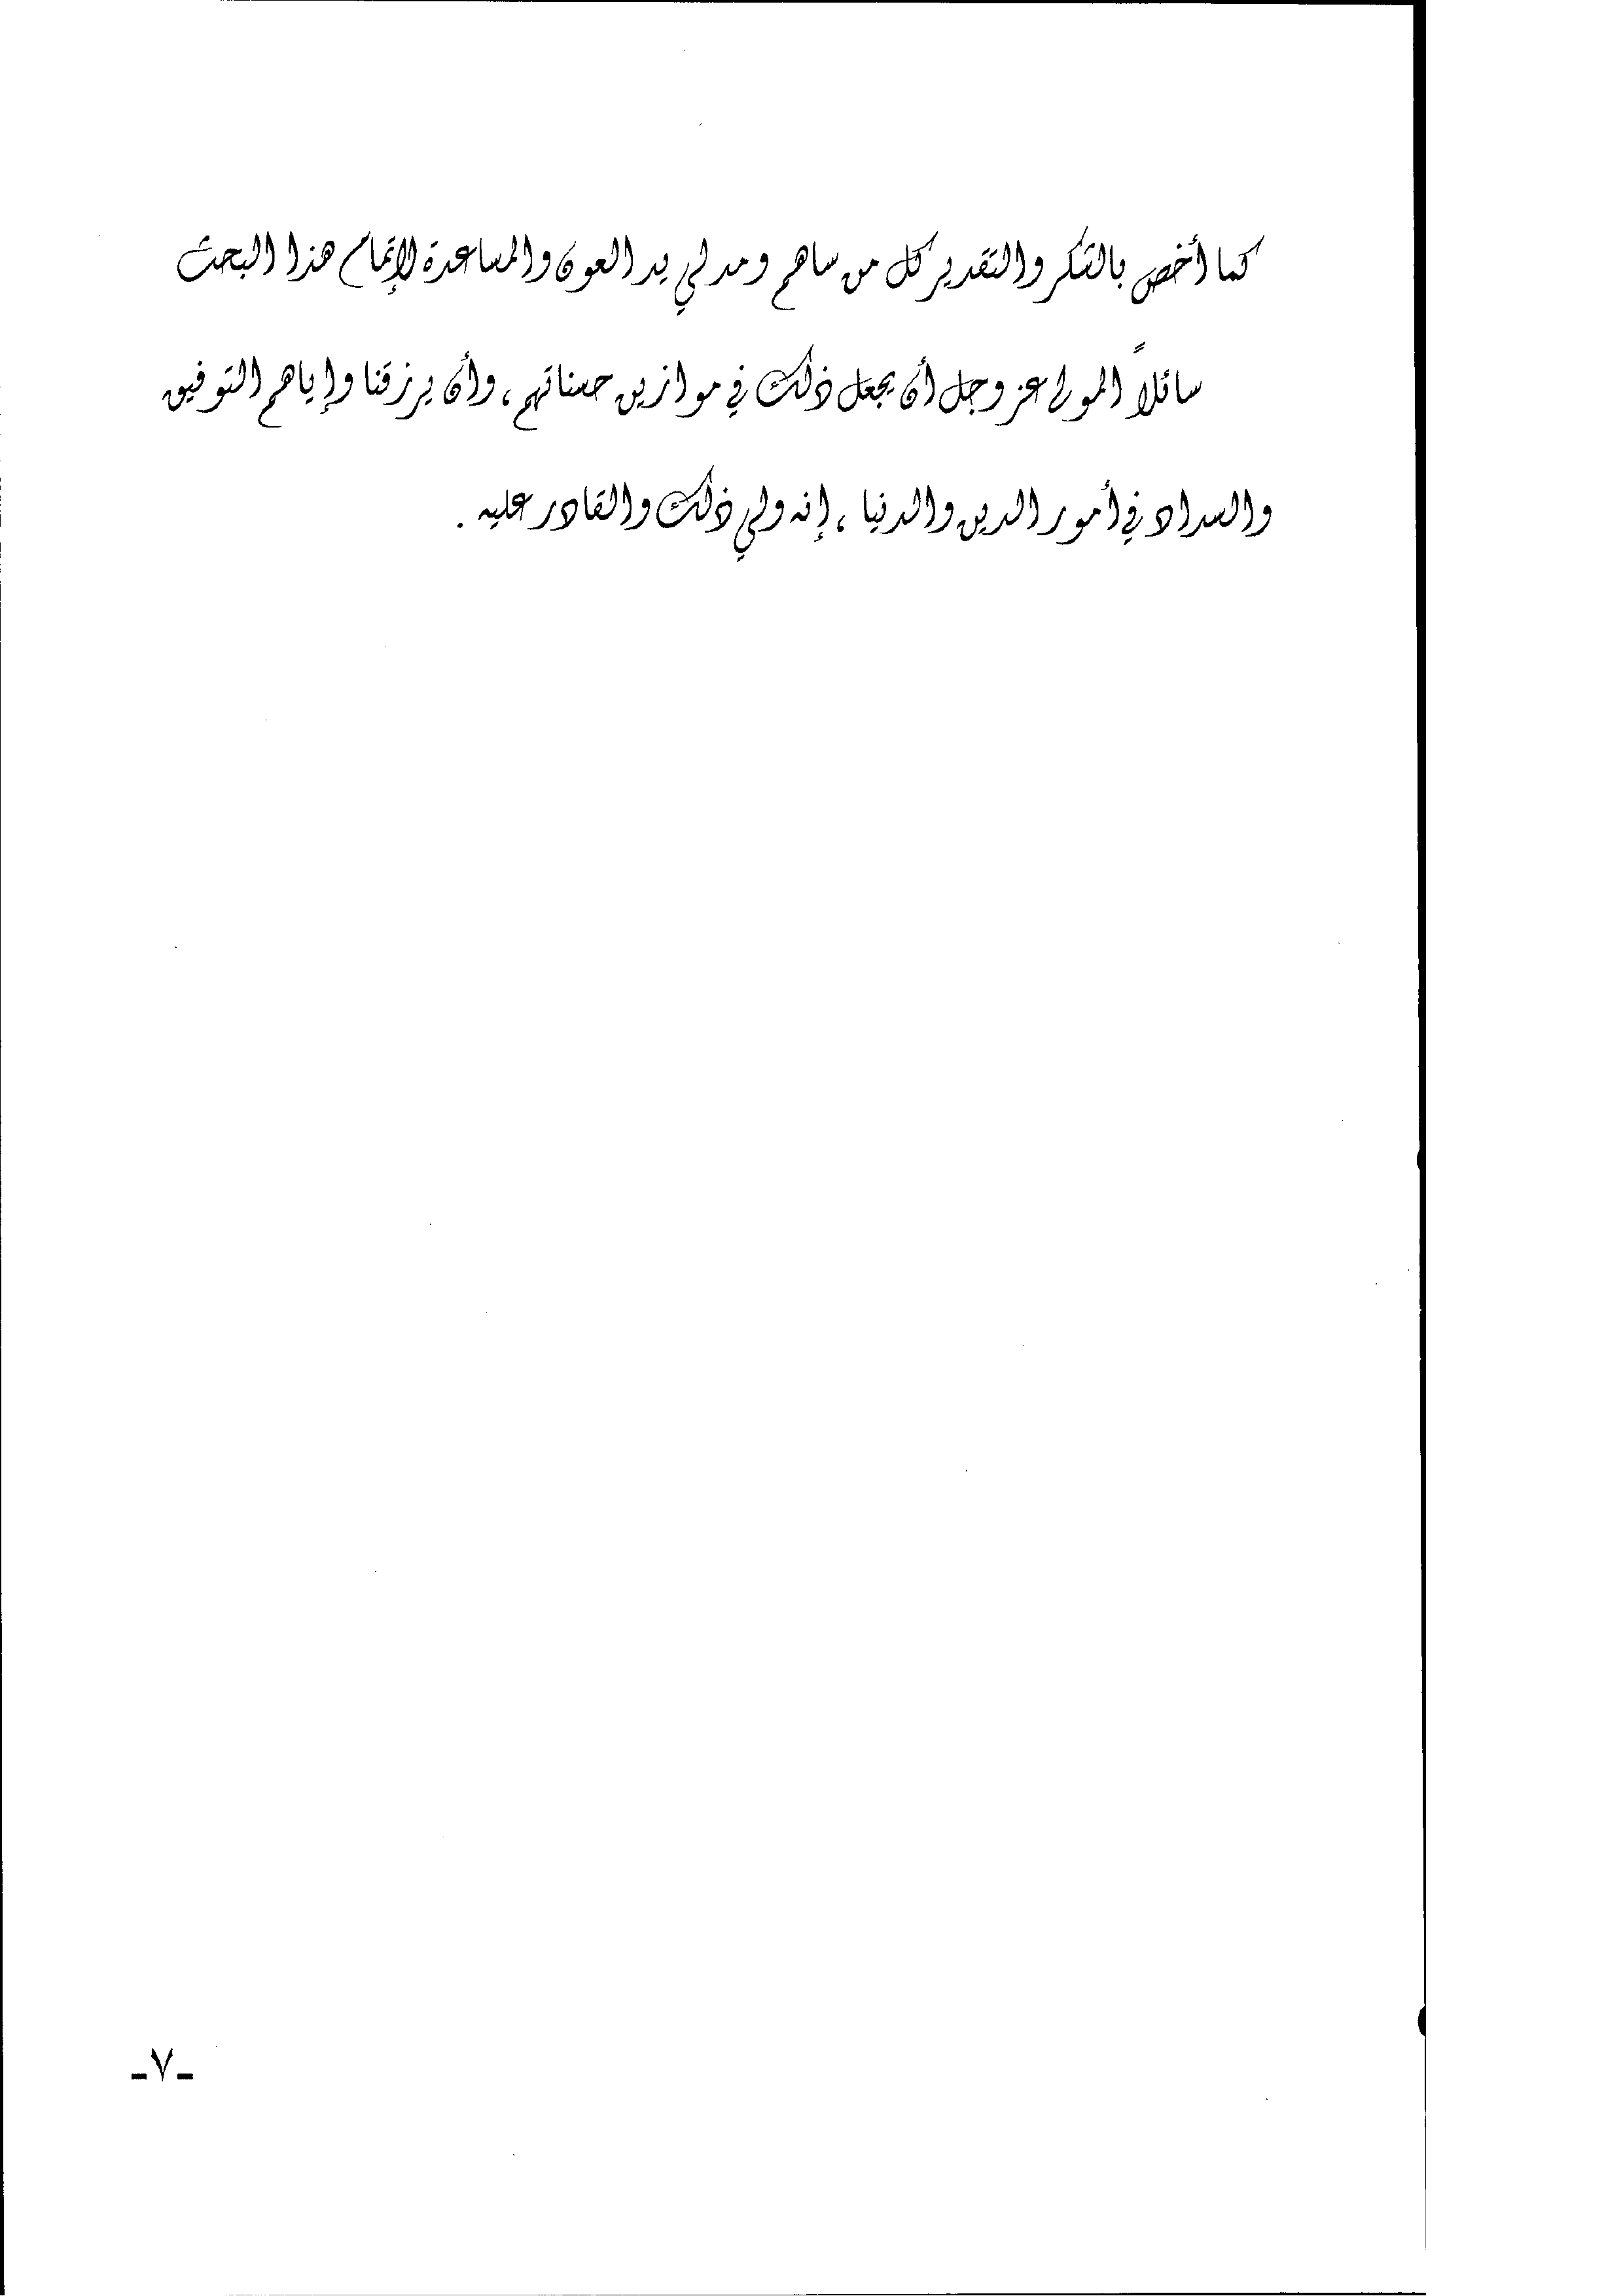 كما أخص بالشكر والتقدير كل من ساهم ومد لي يد العون والمساعدة لإتمام هذا البحث
سائلاً المولى عز وجل أن يجعل ذلك في موازين حسناتهم، وأن يرزقنا وإياهم التوفيق
والسداد في أمور الدين والدنيا ، إنه ولي ذلك والقادر عليه .
-٧-